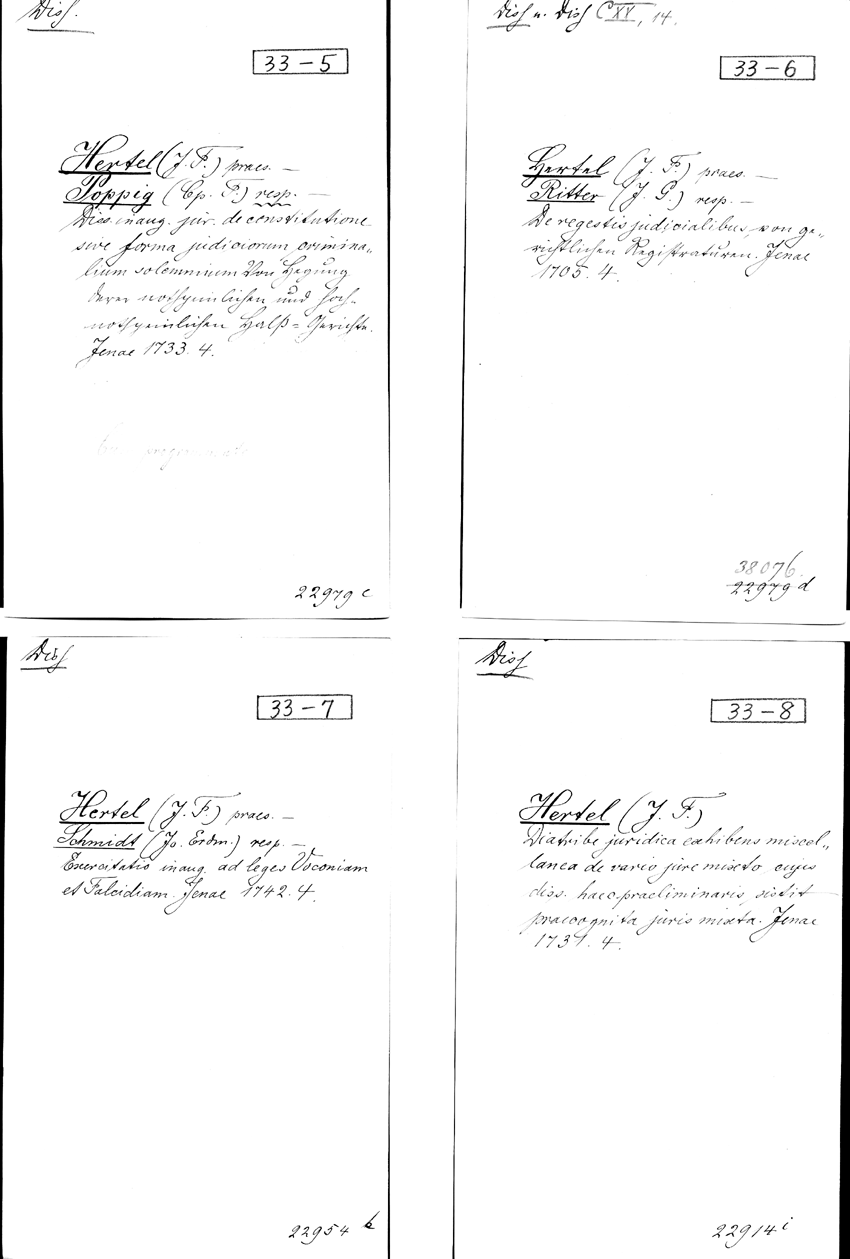 Diss.
33-5
Hertel (J. F.) praes. —
Poppig (Cp. F.) resp. —
Diss. inaug. jur. de constitutione
sive forma judiciorum crimina„
lium solemnium Von Hegung
derer nothpeinlichen und hoch-
nothpeinlichen Halß=Gerichte.
Jenae 1733. 4.
22979 c
Diss u. Diss CXV, 14.
33-6
Hertel (J. F.) praes. —
Ritter (J. G.) resp. —
De regestis judicialibus, von ge„
richtlichen Registraturen. Jenae
1705. 4.
38076.
22979 d
Diss
33-7
Hertel (J. F.) praes. —
Schmidt (Jo. Erdm.) resp. —
Exercitatio inaug. ad leges Voconiam
et Falcidiam. Jenae 1742. 4.
22954 b
Diss
33-8
Hertel (J. F.)
Diatribe juridica exhibens miscel„
lanea de vario jure mixto, cujus
diss. haec praeliminaris, sistit
praecognita juris mixta. Jenae
1731. 4.
22914 i